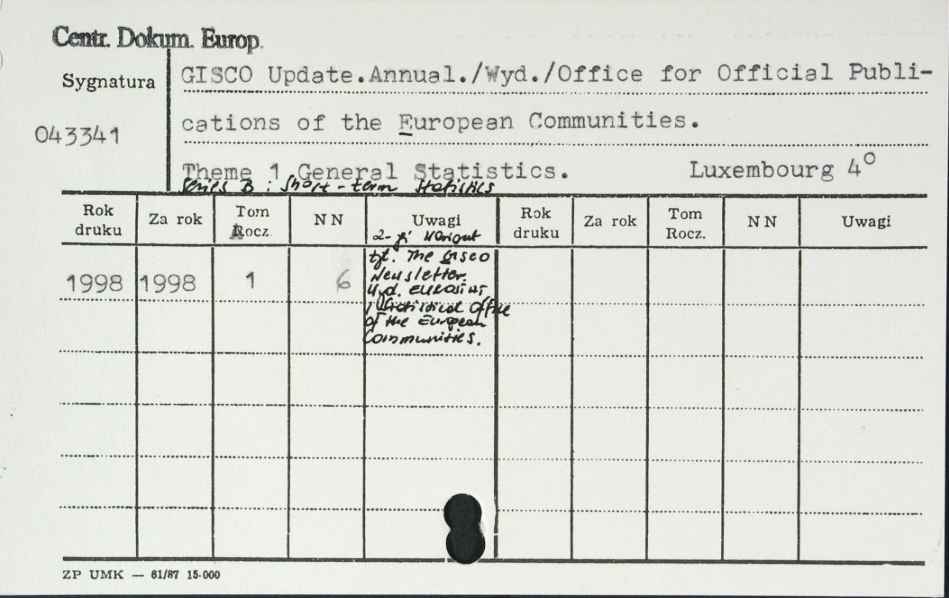 Centr. Dokum. Europ.
Sygnatura
GISCO Update.Annual./Wyd./Office for Official Publi-
043341
cations of the European Communities.
Theme 1 General Statistics. Luxembourg 4°
Series B : Short-term statistics
Rok druku Za rok Tom Rocz. NN Uwagi Rok druku Za rok Tom Rocz. NN Uwagi
1998 1998 1 6
2-gi wariant
tyt. The GISCO
Newsletter.
Wyd. EUROSTAT
Statistical Office
of the European
Communities.
ZP UMK — 61/87 15·000